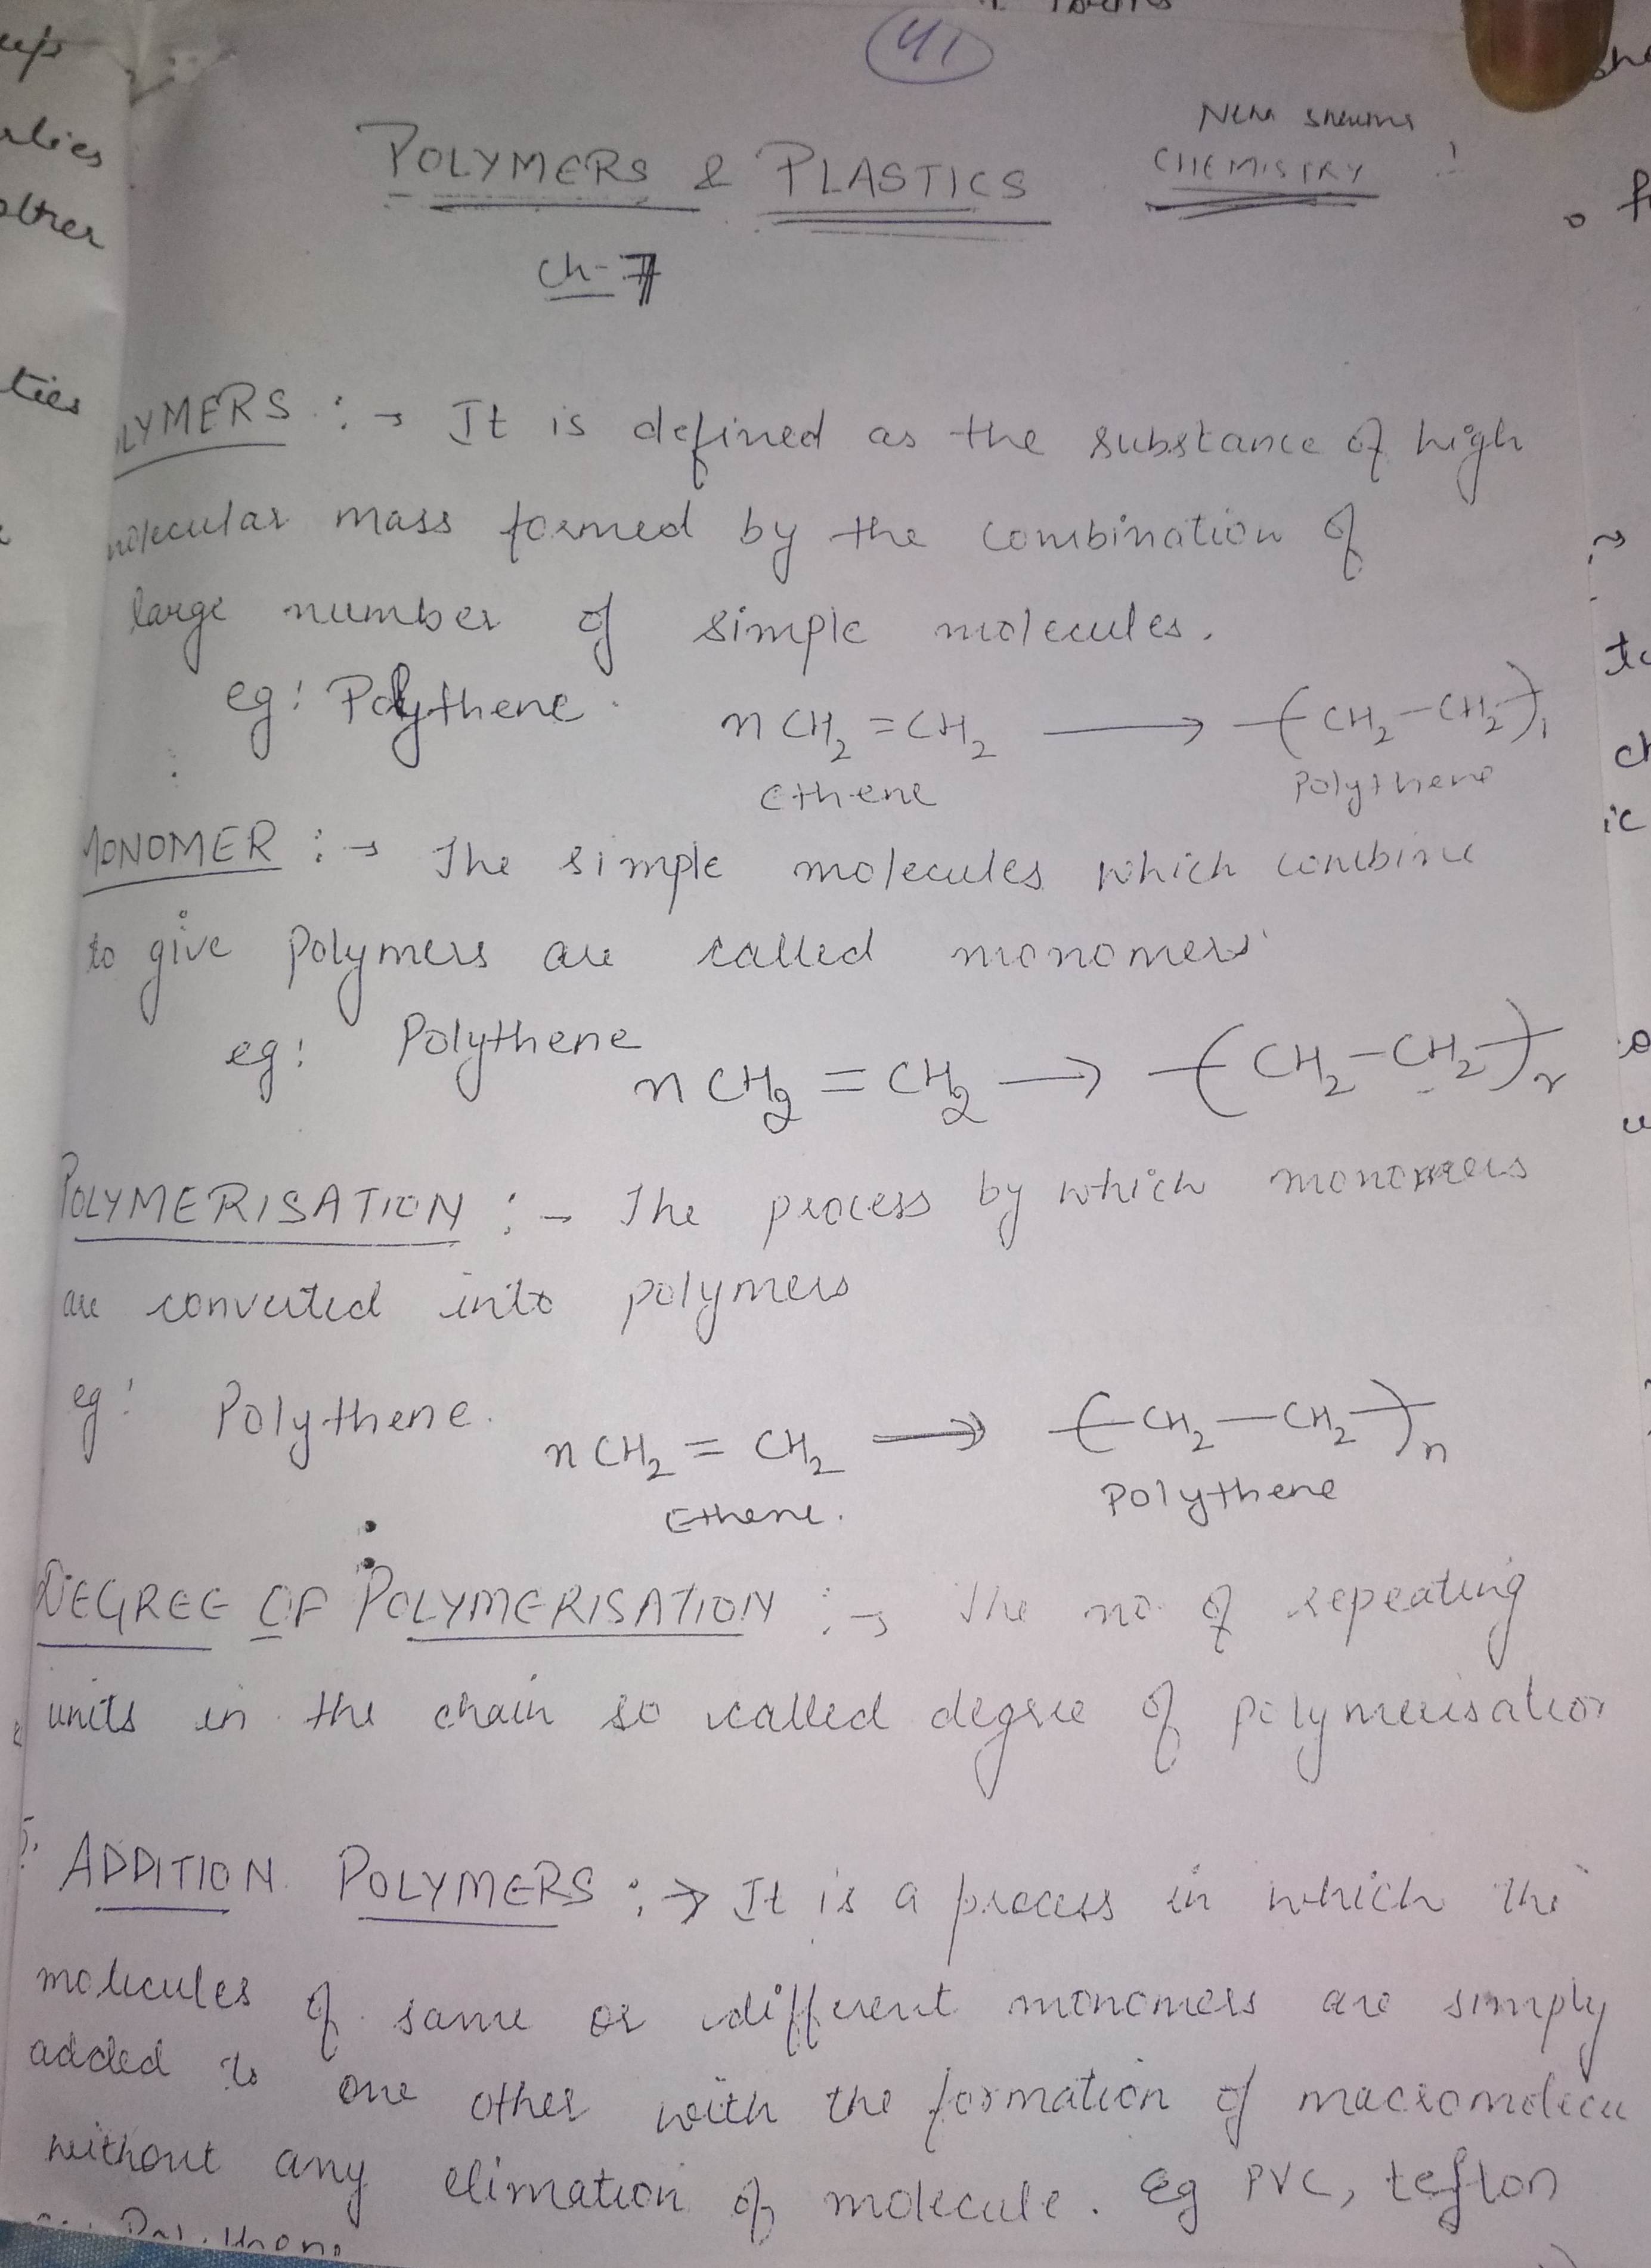 41
POLYMERS & PLASTICS
CHEMISTRY
Ch-7
LYMERS :→ It is defined as the substance of high
molecular mass formed by the combination of
large number of simple molecules.
eg: Polythene nCH₂=CH₂ ⟶ -(CH₂-CH₂)-
Ethene Polythene
MONOMER :→ The simple molecules which combine
to give polymers are called monomers
eg: Polythene nCH₂=CH₂ ⟶ -(CH₂-CH₂)-
POLYMERISATION :- The process by which monomers
are converted into polymers
eg: Polythene. nCH₂=CH₂ ⟶ -(CH₂-CH₂)-n
Ethene. Polythene
DEGREE OF POLYMERISATION :→ The no. of repeating
units in the chain so called degree of polymerisation
5. ADDITION POLYMERS :→ It is a process in which the
molecules of same or different monomers are simply
added to one other with the formation of macromolecu
without any elimation of molecule. Eg PVC, teflon
ties
other